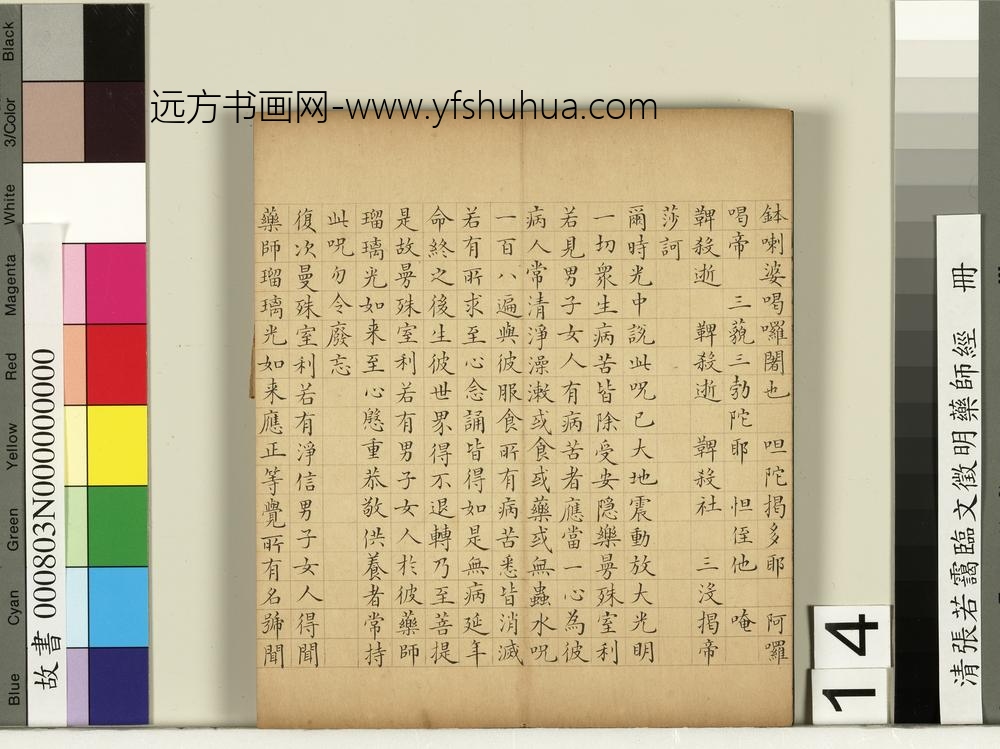 远方书画网-www.yfshuhua.com
鉢喇婆喝囉闍也 呾陀揭多耶 阿囉
喝帝 三藐三勃陀耶 怛侄他 唵
鞞殺逝 鞞殺逝 鞞殺社 三沒揭帝
莎訶
爾時光中說此呪已大地震動放大光明
一切衆生病苦皆除受安隐藥曼殊室利
若見男子女人有病苦者應當一心為彼
病人常清淨澡漱或食或藥或無蟲水呪
一百八遍與彼服食所有病苦悉皆消滅
若有所求至心念誦皆得如是無病延年
命終之後生彼世界得不退轉乃至菩提
是故曼殊室利若有男子女人於彼藥師
瑠璃光如来至心慇重恭敬供養者常持
此呪勿令廢忘
復次曼殊室利若有淨信男子女人得聞
藥師瑠璃光如来應正等覺所有名號聞
清張若靄臨文徵明藥師經 冊
14
故書 000803N000000000
Black
3/Color
White
Magenta
Red
Yellow
Green
Cyan
Blue